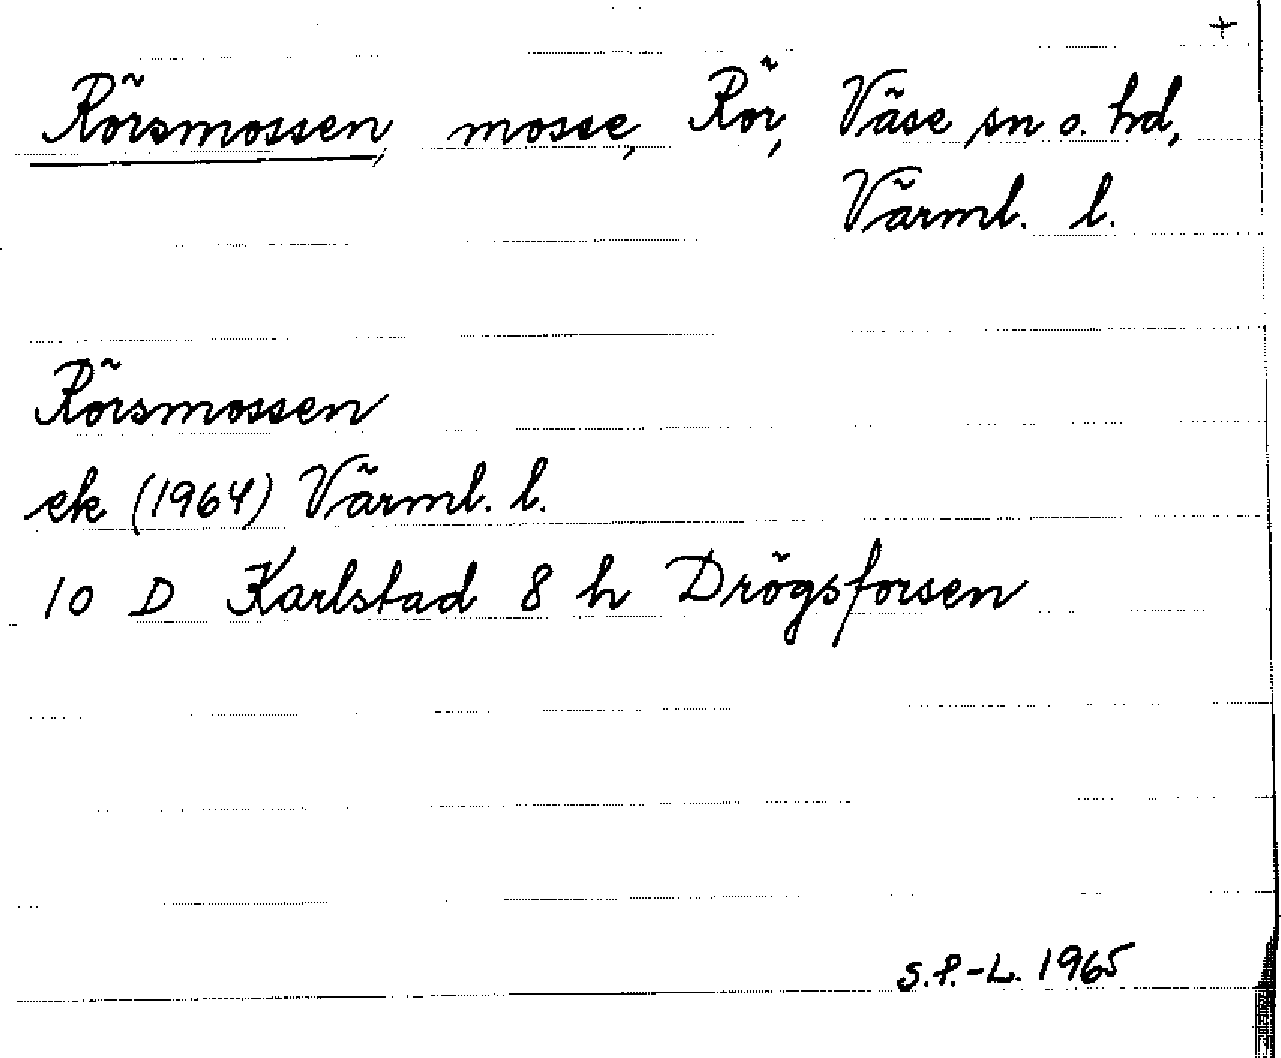 +
Rörsmossen, mosse, Rör, Väse sn o. hd,
Värml. l.
Rörsmossen
ek (1964) Värml. l.
10 D Karlstad 8 h Drögsforsen
S.P.-L. 1965